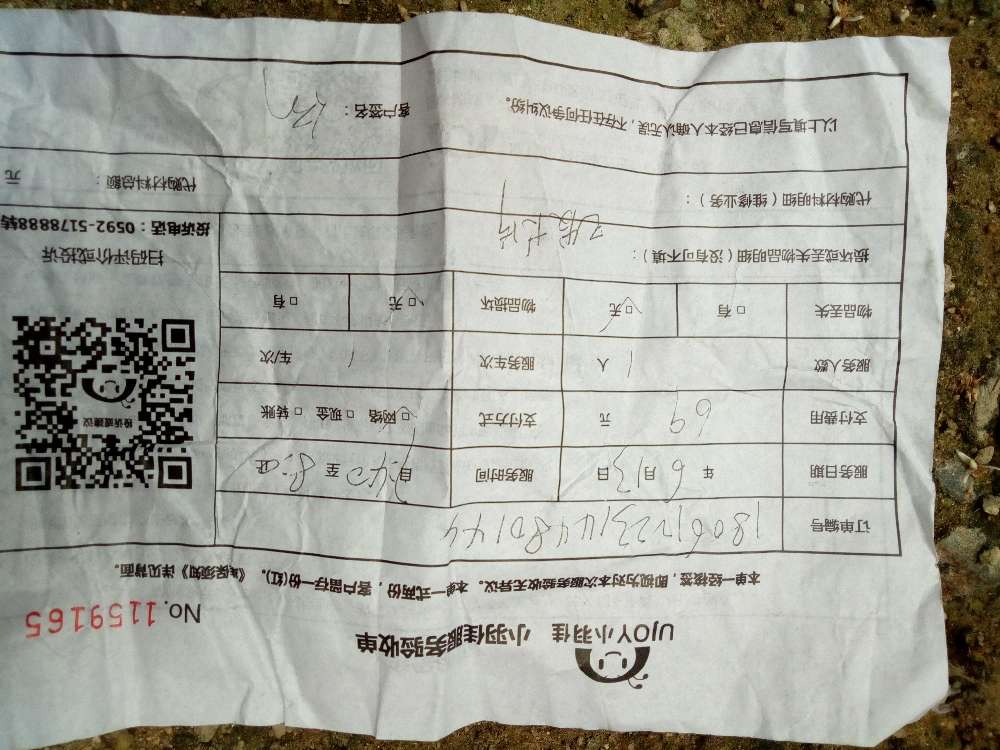 UJOY小羽佳 小羽佳服务验收单
No.1159165
本单一经核签，即视为对本次服务验收无异议。本单一式两份，客户留存一份(红)。《承保须知》详见背面。
订单编号
服务日期 年 6 月 13 日 服务时间 自 至
支付费用 69 元 支付方式 □网络 □现金 □转账
服务人数 1 人 服务车次 1 车/次
物品丢失 □有 □无 物品损坏 □无 □有
损坏或丢失物品明细（没有可不填）：
代购材料明细（维修业务）：
代购材料总额： 元
以上填写信息已经本人确认无误，不存在任何争议纠纷。 客户签名：
投诉或建议
扫码评价或投诉
投诉电话：0592-5178888转